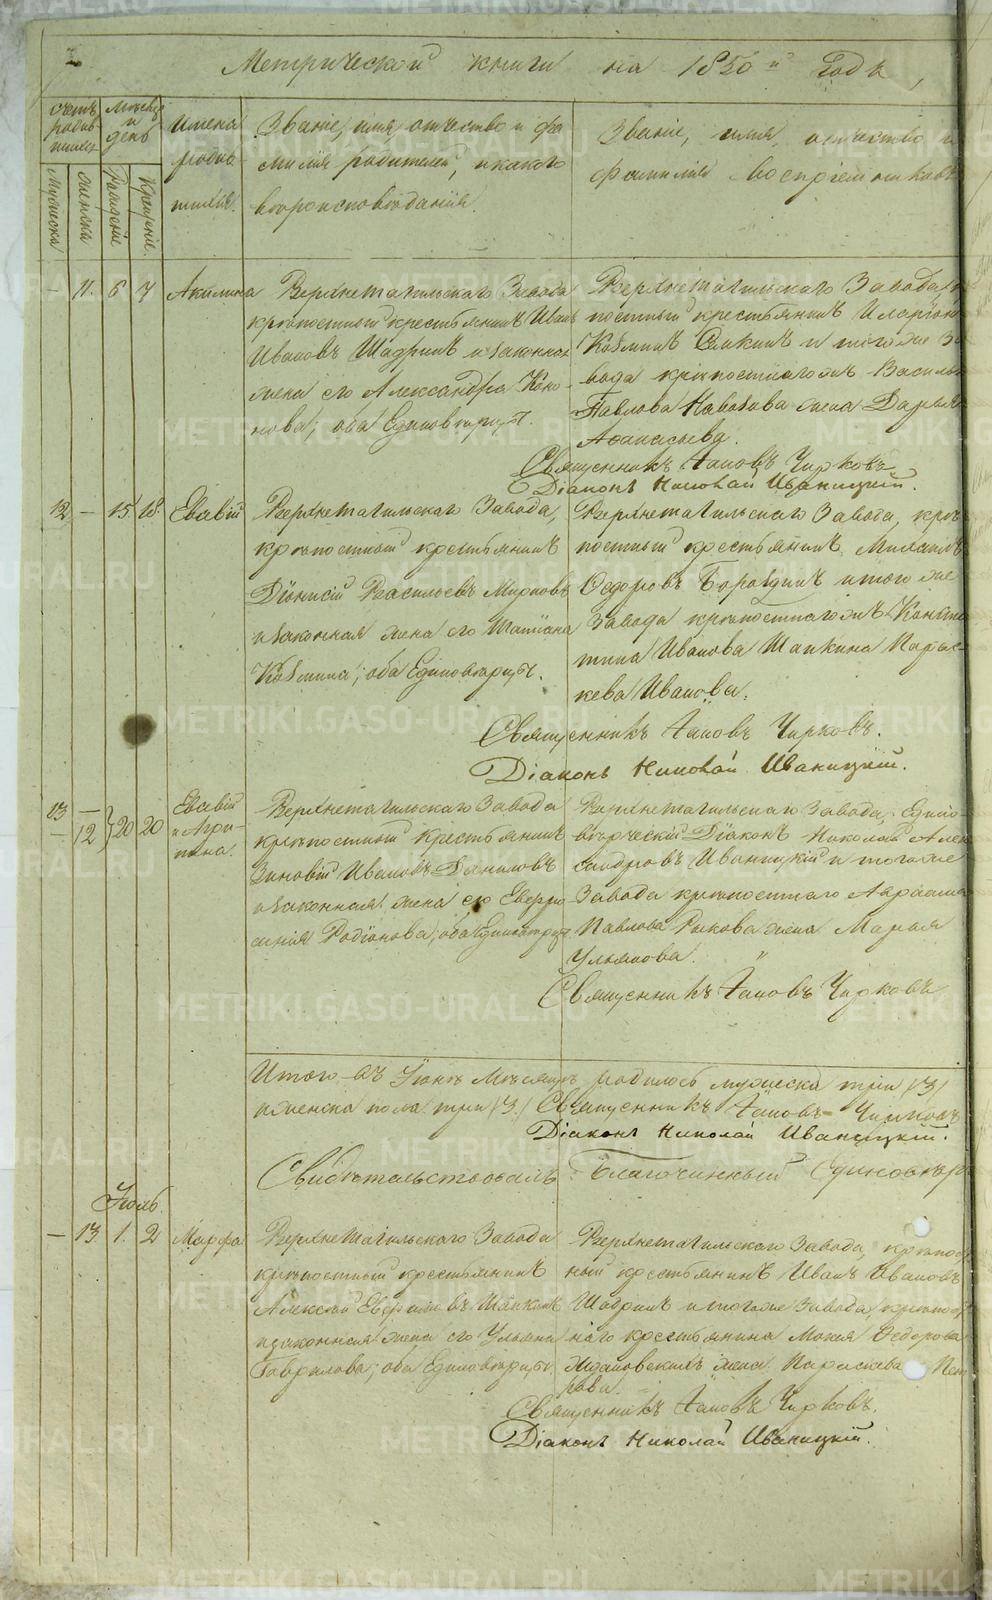 Метрической книги на 1850й Годъ,
счетъ родившихся
Мѣсяцъ и день
Имена родившихся.
Званіе, имя отчество и фамилія родителей, и какого вѣроисповѣданія.
Званіе, имя, отчество и фамилія Воспріемниковъ
Мужеска
женска
Рожденія
Крещенія.
— 11. 6 7 Акилина
Верхнетагильскаго Завода
крѣпостный крестьянинъ Иванъ
Ивановъ Шадринъ и законная
жена его Александра
нова; оба Единовѣрцы.
Верхнетагильскаго Завода,
постный крестьянинъ Иларіонъ
Козминъ и тогоже За-
вода крѣпостнаго Василья
Павлова жена Дарья
Афанасьева.
Священникъ Іаковъ Чирковъ
Діаконъ Николай Иваницкій.
12 — 15 18. Евсевій
Верхнетагильскаго Завода,
крѣпостный крестьянинъ
Діонисій Васильевъ Мироновъ
и законная жена его Татіана
Козмина; оба Единовѣрцы.
Верхнетагильскаго Завода, крѣ-
постный крестьянинъ Михаилъ
Ѳедоровъ Бороздинъ и того же
Завода крѣпостнаго Констан
тина Иванова Шапкина Парас-
кева Иванова.
Священникъ Іаковъ Чирковъ.
Діаконъ Николай Иваницкій.
13 —
— 12 20 20
Евсевій
и Агри-
пина.
Верхнетагильскаго Завода
крѣпостный крестьянинъ
Зиновій Ивановъ Даниловъ
и законная жена его Евфро
синія Родіонова; оба Единовѣрцы
Верхнетагильскаго Завода, Едино-
вѣрческій Діаконъ Николай Алек
сандровъ Иваницкій и тогоже
Завода крѣпостнаго Авраама
Павлова Рыкова жена Марья
Ульянова.
Священникъ Іаковъ Чирковъ
Итого въ Іюнѣ Мѣсяцѣ родилось мужеска три /3/
и женска пола три /3/ Священникъ Іаковъ Чирковъ
Діаконъ Николай Иваницкій.
Свидѣтельствовалъ Благочинный Единовѣр
Іюль.
— 13. 1. 2 Марфа
Верхнетагильскаго Завода
крѣпостный крестьянинъ
Алексѣй Шапкинъ
и законная жена его Ульяна
Гаврилова; оба Единовѣрцы.
Верхнетагильскаго Завода, крѣпост
ный крестьянинъ Иванъ Ивановъ
Шадринъ и тогоже Завода, крѣпост
наго крестьянина Мокея Ѳедорова
жена Параскева Пет
рова.
Священникъ Іаковъ Чирковъ.
Діаконъ Николай Иваницкій.
METRIKI.GASO-URAL.RU